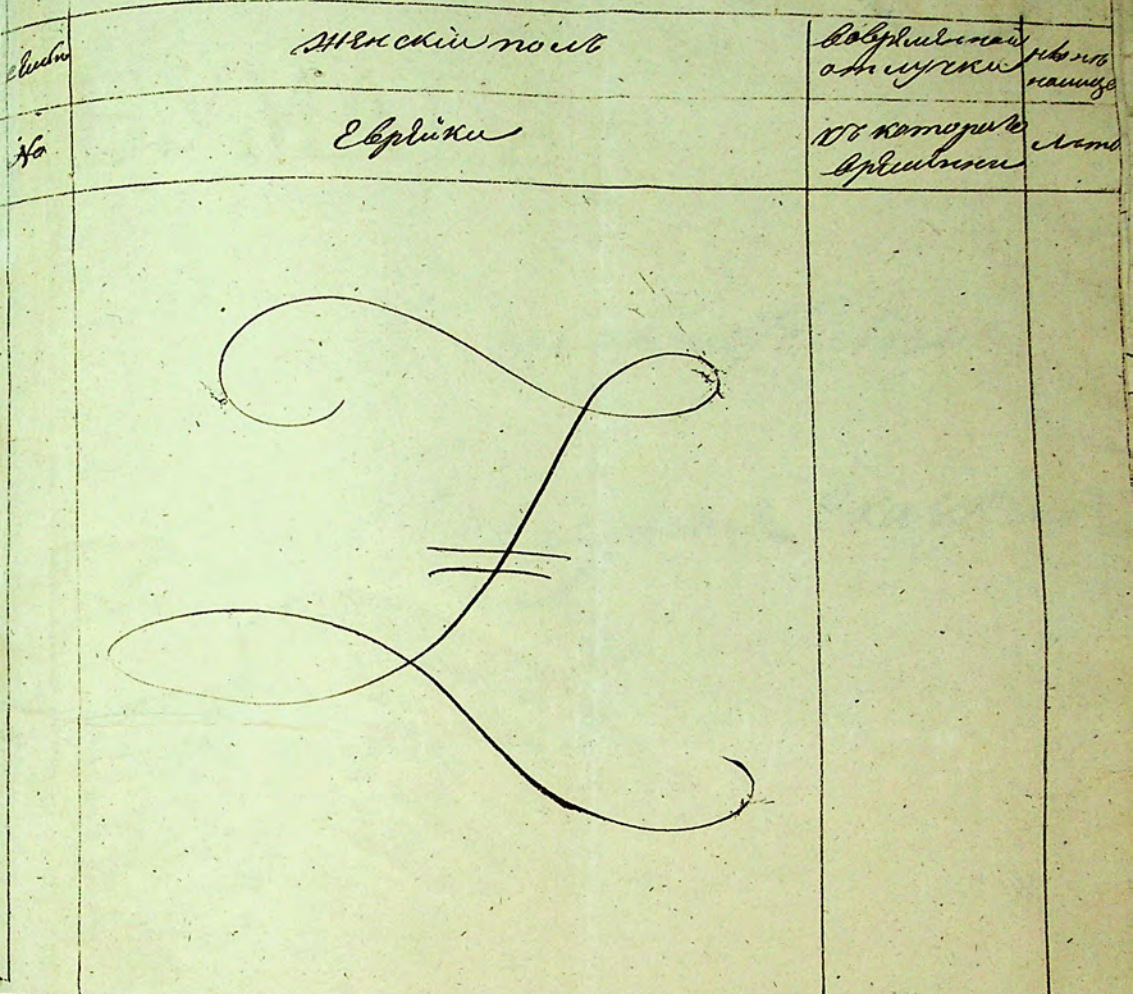 семьи
женскій полъ
во временной
отлучки
нынѣ на лице
№
Еврейки
съ котораго
времени
лета